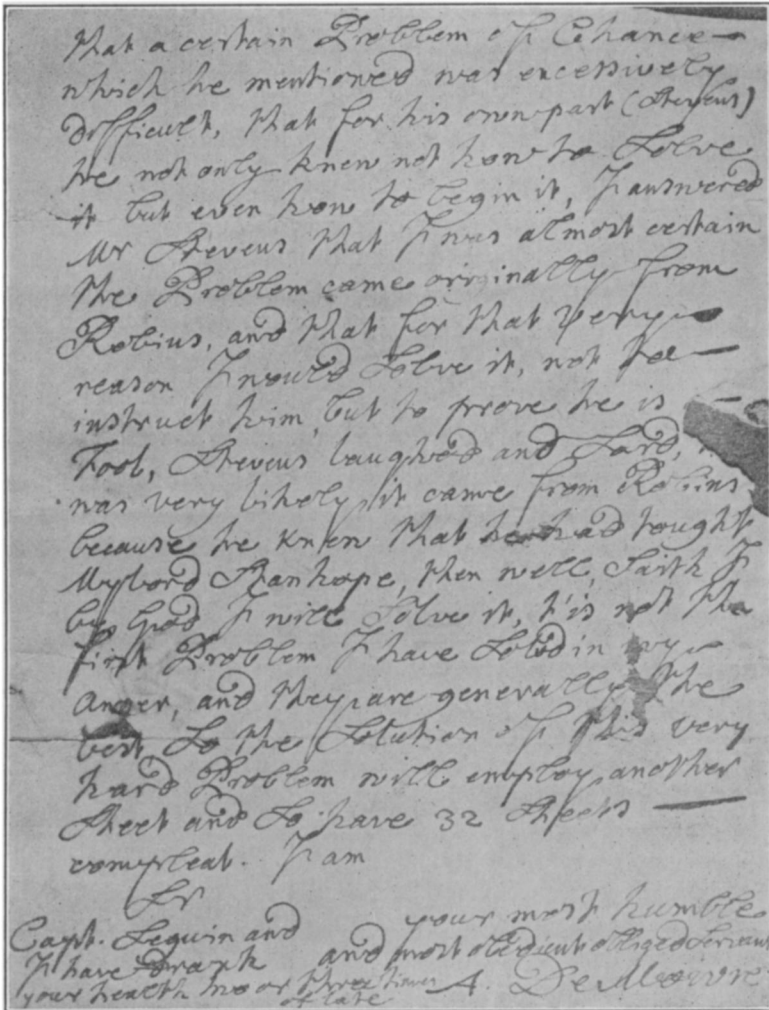 that a certain Problem of Chance
which he mentioned was excessively
difficult, that for his own part (Stevens)
he not only knew not how to Solve
it but even how to begin it, I answered
Mr Stevens that I was almost certain
the Problem came originally from
Robins, and that for that very
reason I would Solve it, not to
instruct him, but to prove he is
Fool, Stevens laughed and Said,
was very likely it came from Robins
because he knew that he had tought
Mylord Stanhope, then well, Saith I
by God I will Solve it, t'is not the
first Problem I have Solv'd in my
Anger, and they are generally the
best, So the Solution of this very
hard Problem will employ another
Sheet and So have 32 Sheets
compleat. I am
Sr
your most humble
and most obedient obliged Servant
A. De Moivre
Capt. Sequin and
I have drank
your health two or three times
of late